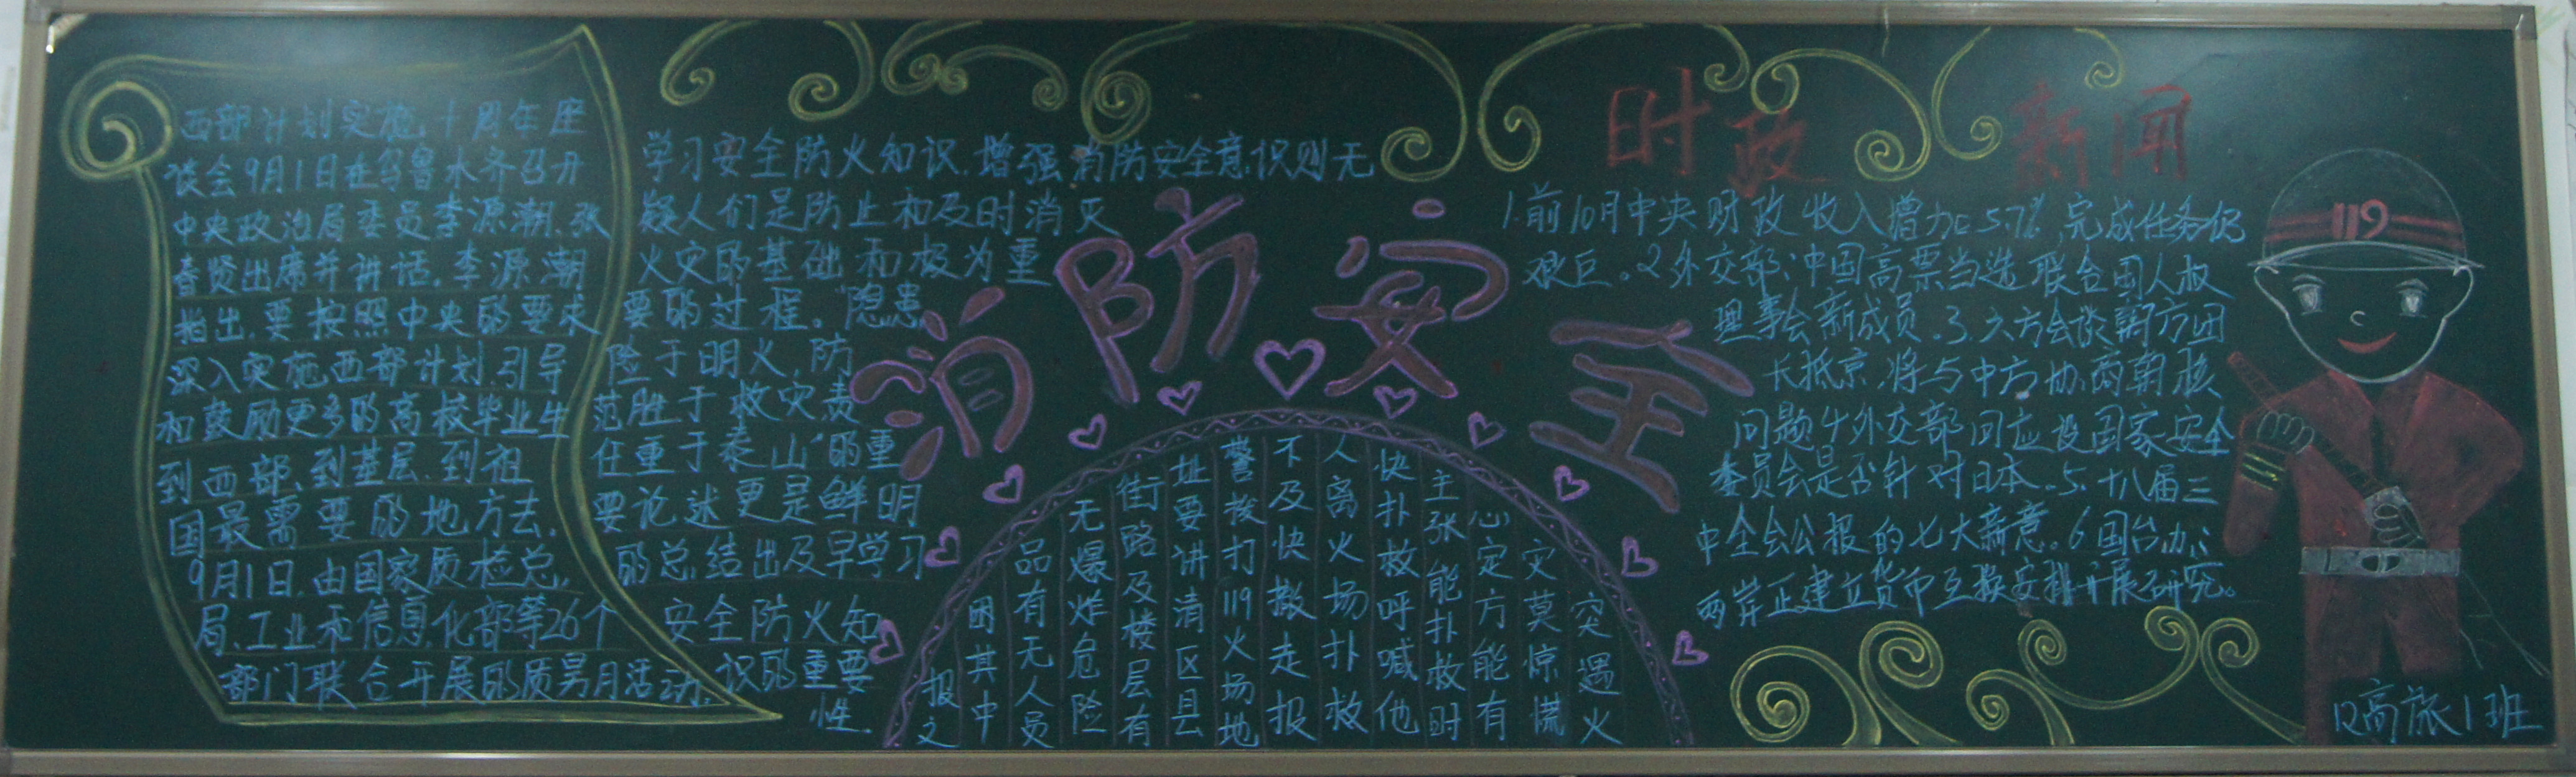 西部计划实施十周年座
谈会9月1日在乌鲁木齐召开
中央政治局委员李源潮、张
春贤出席并讲话.李源潮
指出.要按照中央的要求
深入实施西部计划引导
和鼓励更多的高校毕业生
到西部、到基层、到祖
国最需要的地方去.
9月1日.由国家质检总
局、工业和信息化部等26个
部门联合开展的质男月活动.
学习安全防火知识.增强消防安全意识则无
疑人们是防止和及时消灭
火灾的基础和极为重
要的过程。“隐患
险于明火,防
范胜于救灾责
任重于泰山”的重
要论述更是鲜明
的总结出及早学习
安全防火知
识的重要
性.
消防安全
突遇火
灾莫惊慌
心定方能有
主张能扑救时
快扑救呼喊他
人离火场扑救
不及快撤走报
警拨打119火场地
址要讲清区县
街路及楼层有
无爆炸危险
品有无人员
困其中
报文
时政新闻
1.前10月中央财政收入增加5.7%,完成任务仍
艰巨。2外交部:中国高票当选联合国人权
理事会新成员.3.六方会谈朝方团
长抵京,将与中方协商朝核
问题4外交部回应设国家安全
委员会是否针对日本.5.十八届三
中全会公报的七大新意。6国台办:
两岸正建立货币互换安排开展研究。
119
12高旅1班